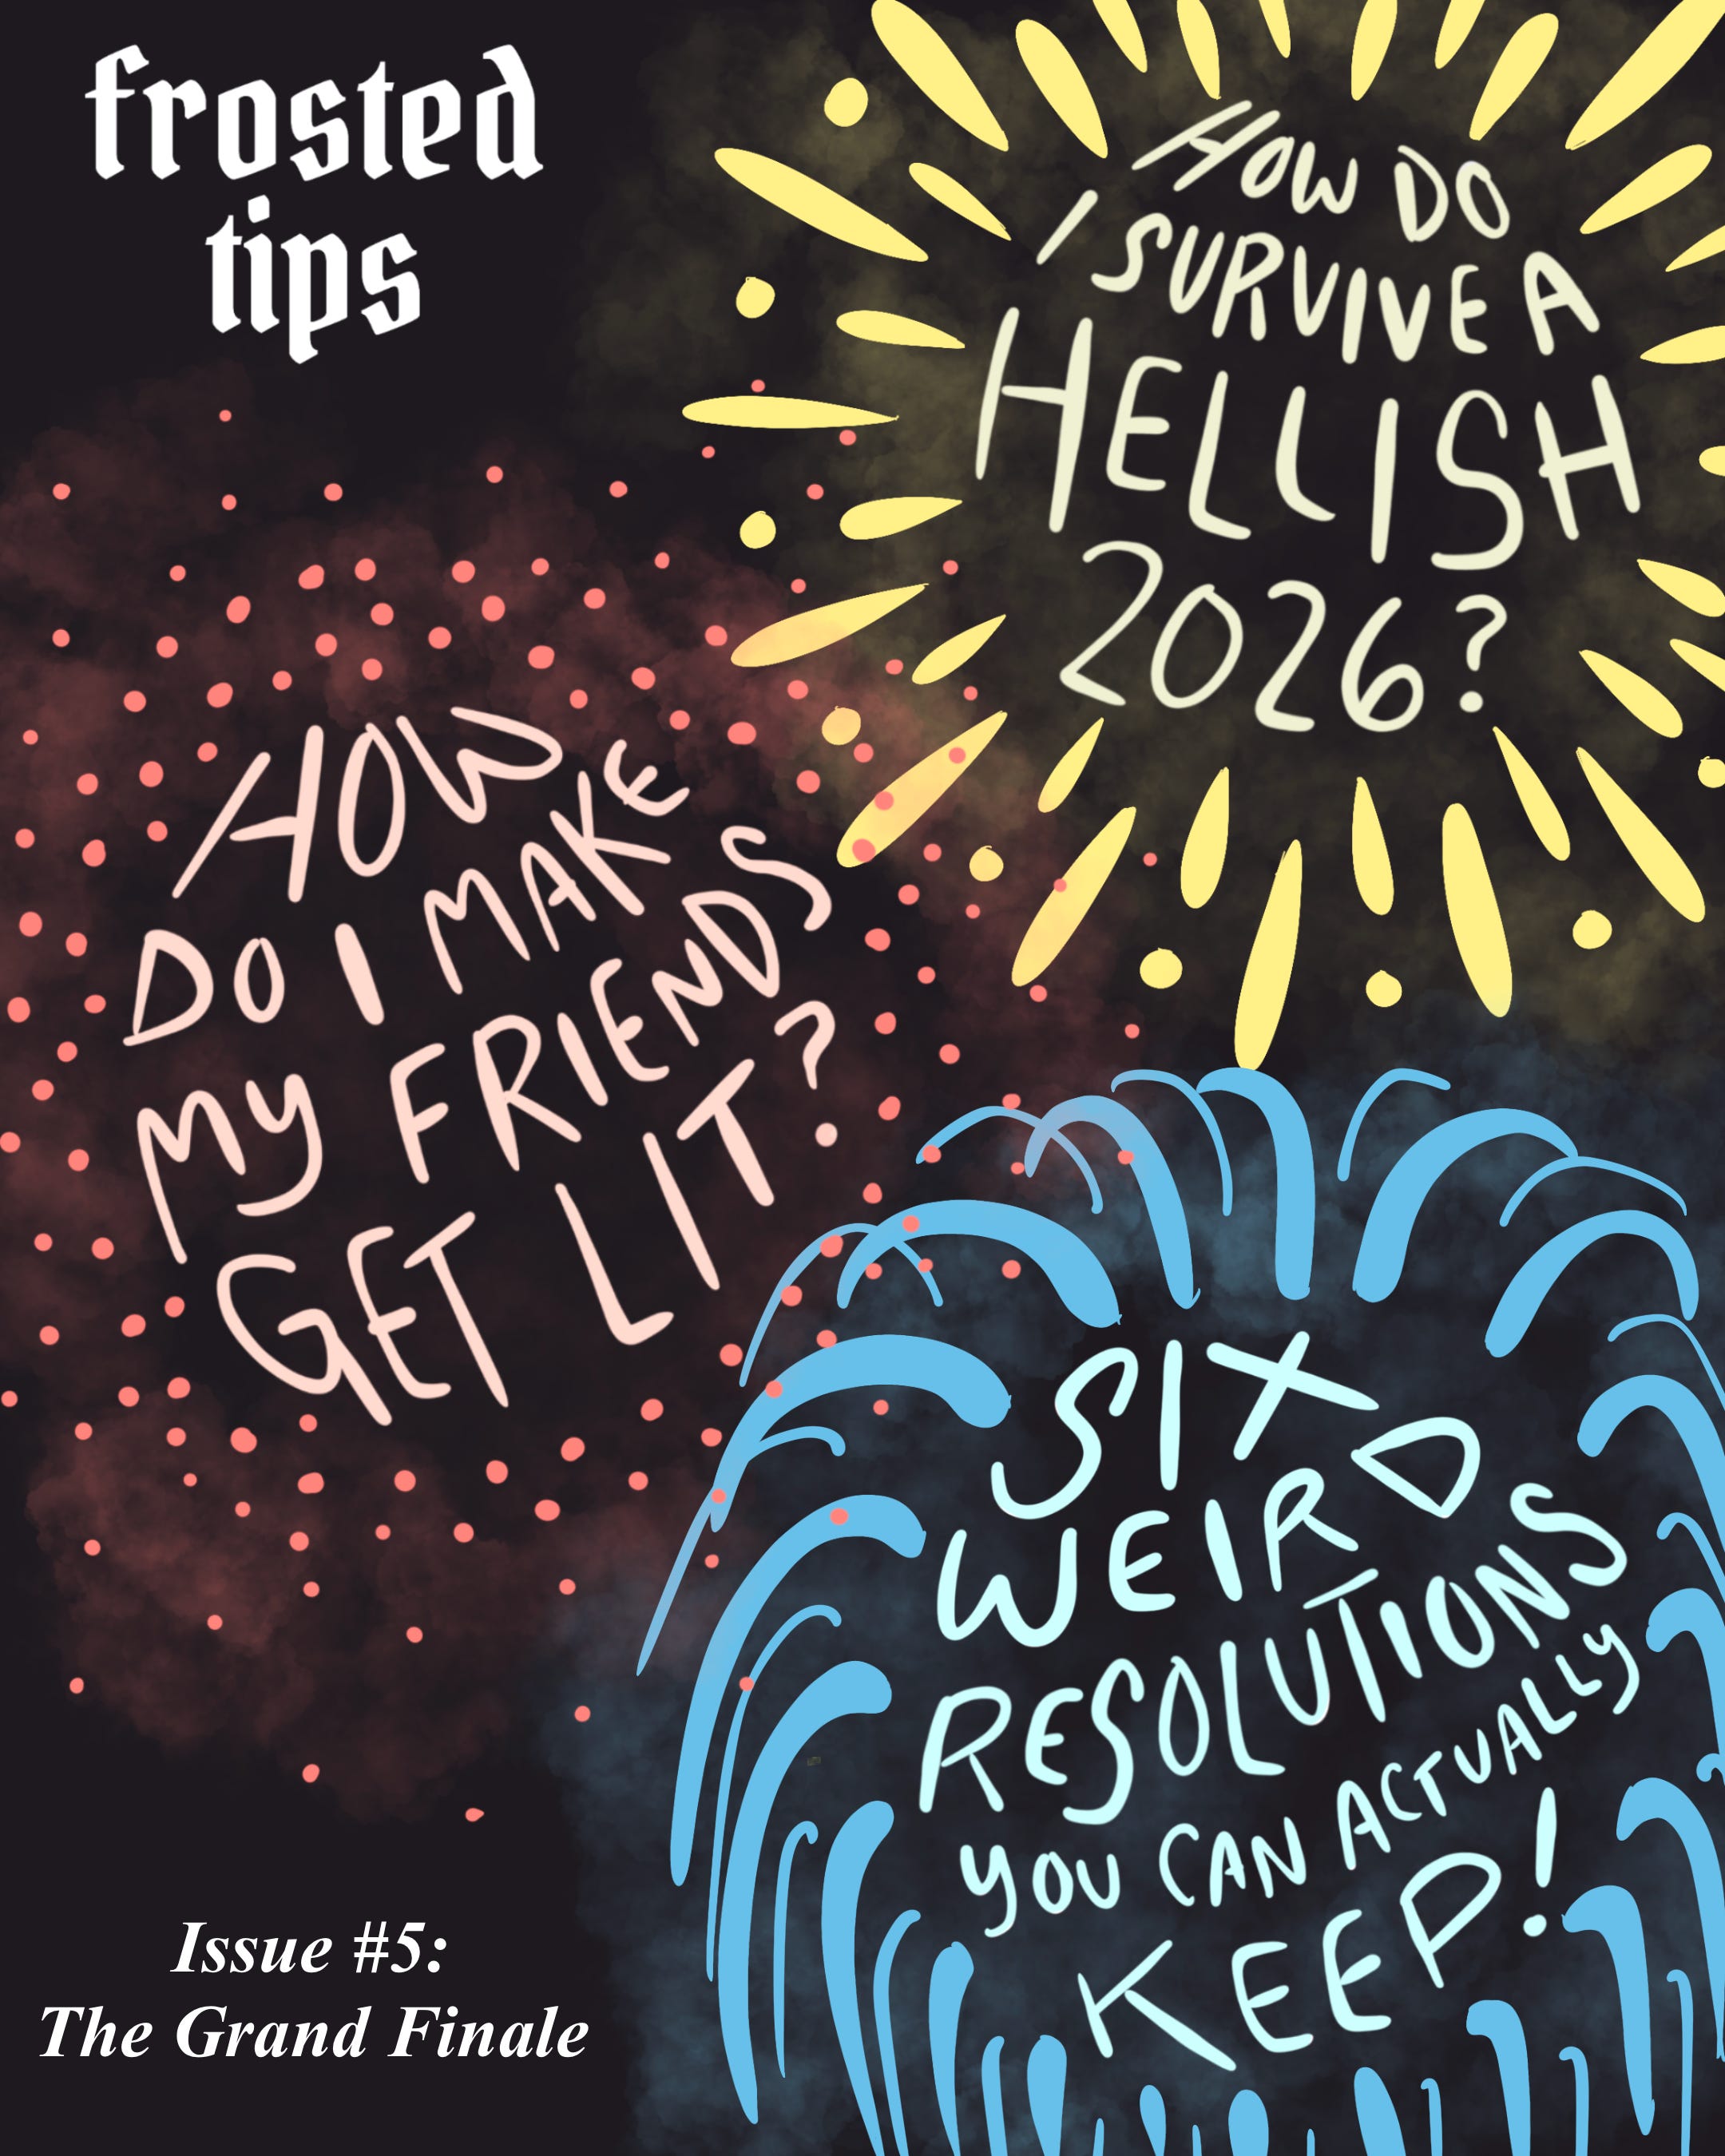 frosted
tips
HOW DO
I SURVIVE A
HELLISH
2026?
HOW
DO I MAKE
MY FRIENDS
GET LIT?
SIX
WEIRD
RESOLUTIONS
YOU CAN ACTUALLY
KEEP!
Issue #5:
The Grand Finale